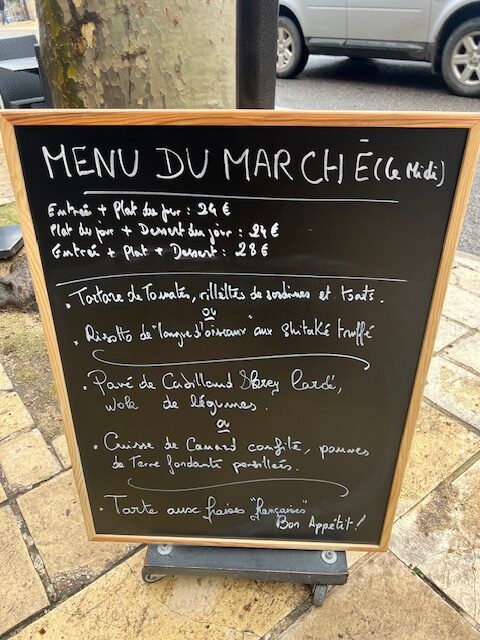 MENU DU MARCHÉ (Le Midi)
Entrée + Plat du jour : 24 €
Plat du jour + Dessert du jour : 24 €
Entrée + Plat + Dessert : 28 €
. Tartare de Tomates, rillettes de sardines et toasts.
ou
. Risotto de "langue d'oiseaux" aux shitaké truffé
. Pavé de Cabillaud Skrey lardé,
wok de légumes.
ou
. Cuisse de Canard confite, pommes
de Terre fondante persillées.
. Tarte aux fraises "françaises"
Bon Appétit !